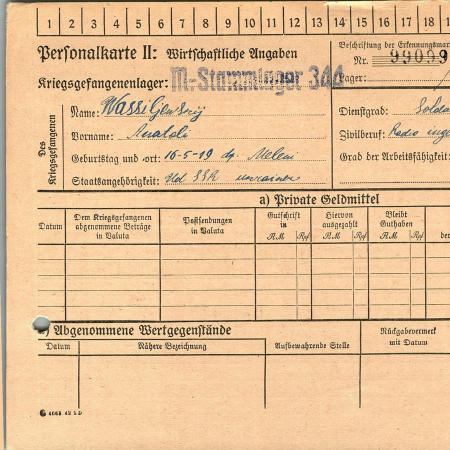 1 2 3 4 5 6 7 8 9 10 11 12 13 14 15 16 17 18
Personalkarte II: Wirtschaftliche Angaben
Beschriftung der Erkennungsmar
Nr. 99059
Kriegsgefangenenlager: M.-Stammlager 344
Lager:
Des Kriegsgefangenen
Name:
Dienstgrad: Solda
Vorname: Anatoli
Zivilberuf: Radio inge
Geburtstag und -ort: 16-5-19
Grad der Arbeitsfähigkeit:
Staatsangehörigkeit:
a) Private Geldmittel
Datum
Dem Kriegsgefangenen abgenommene Beträge in Valuta
Postsendungen in Valuta
Gutschrift in
RM Rpf
Hiervon ausgezahlt
RM Rpf
Bleibt Guthaben
RM Rpf
der
) Abgenommene Wertgegenstände
Rückgabevermerk mit Datum
Datum
Nähere Bezeichnung
Aufbewahrende Stelle
4063 42 5 D